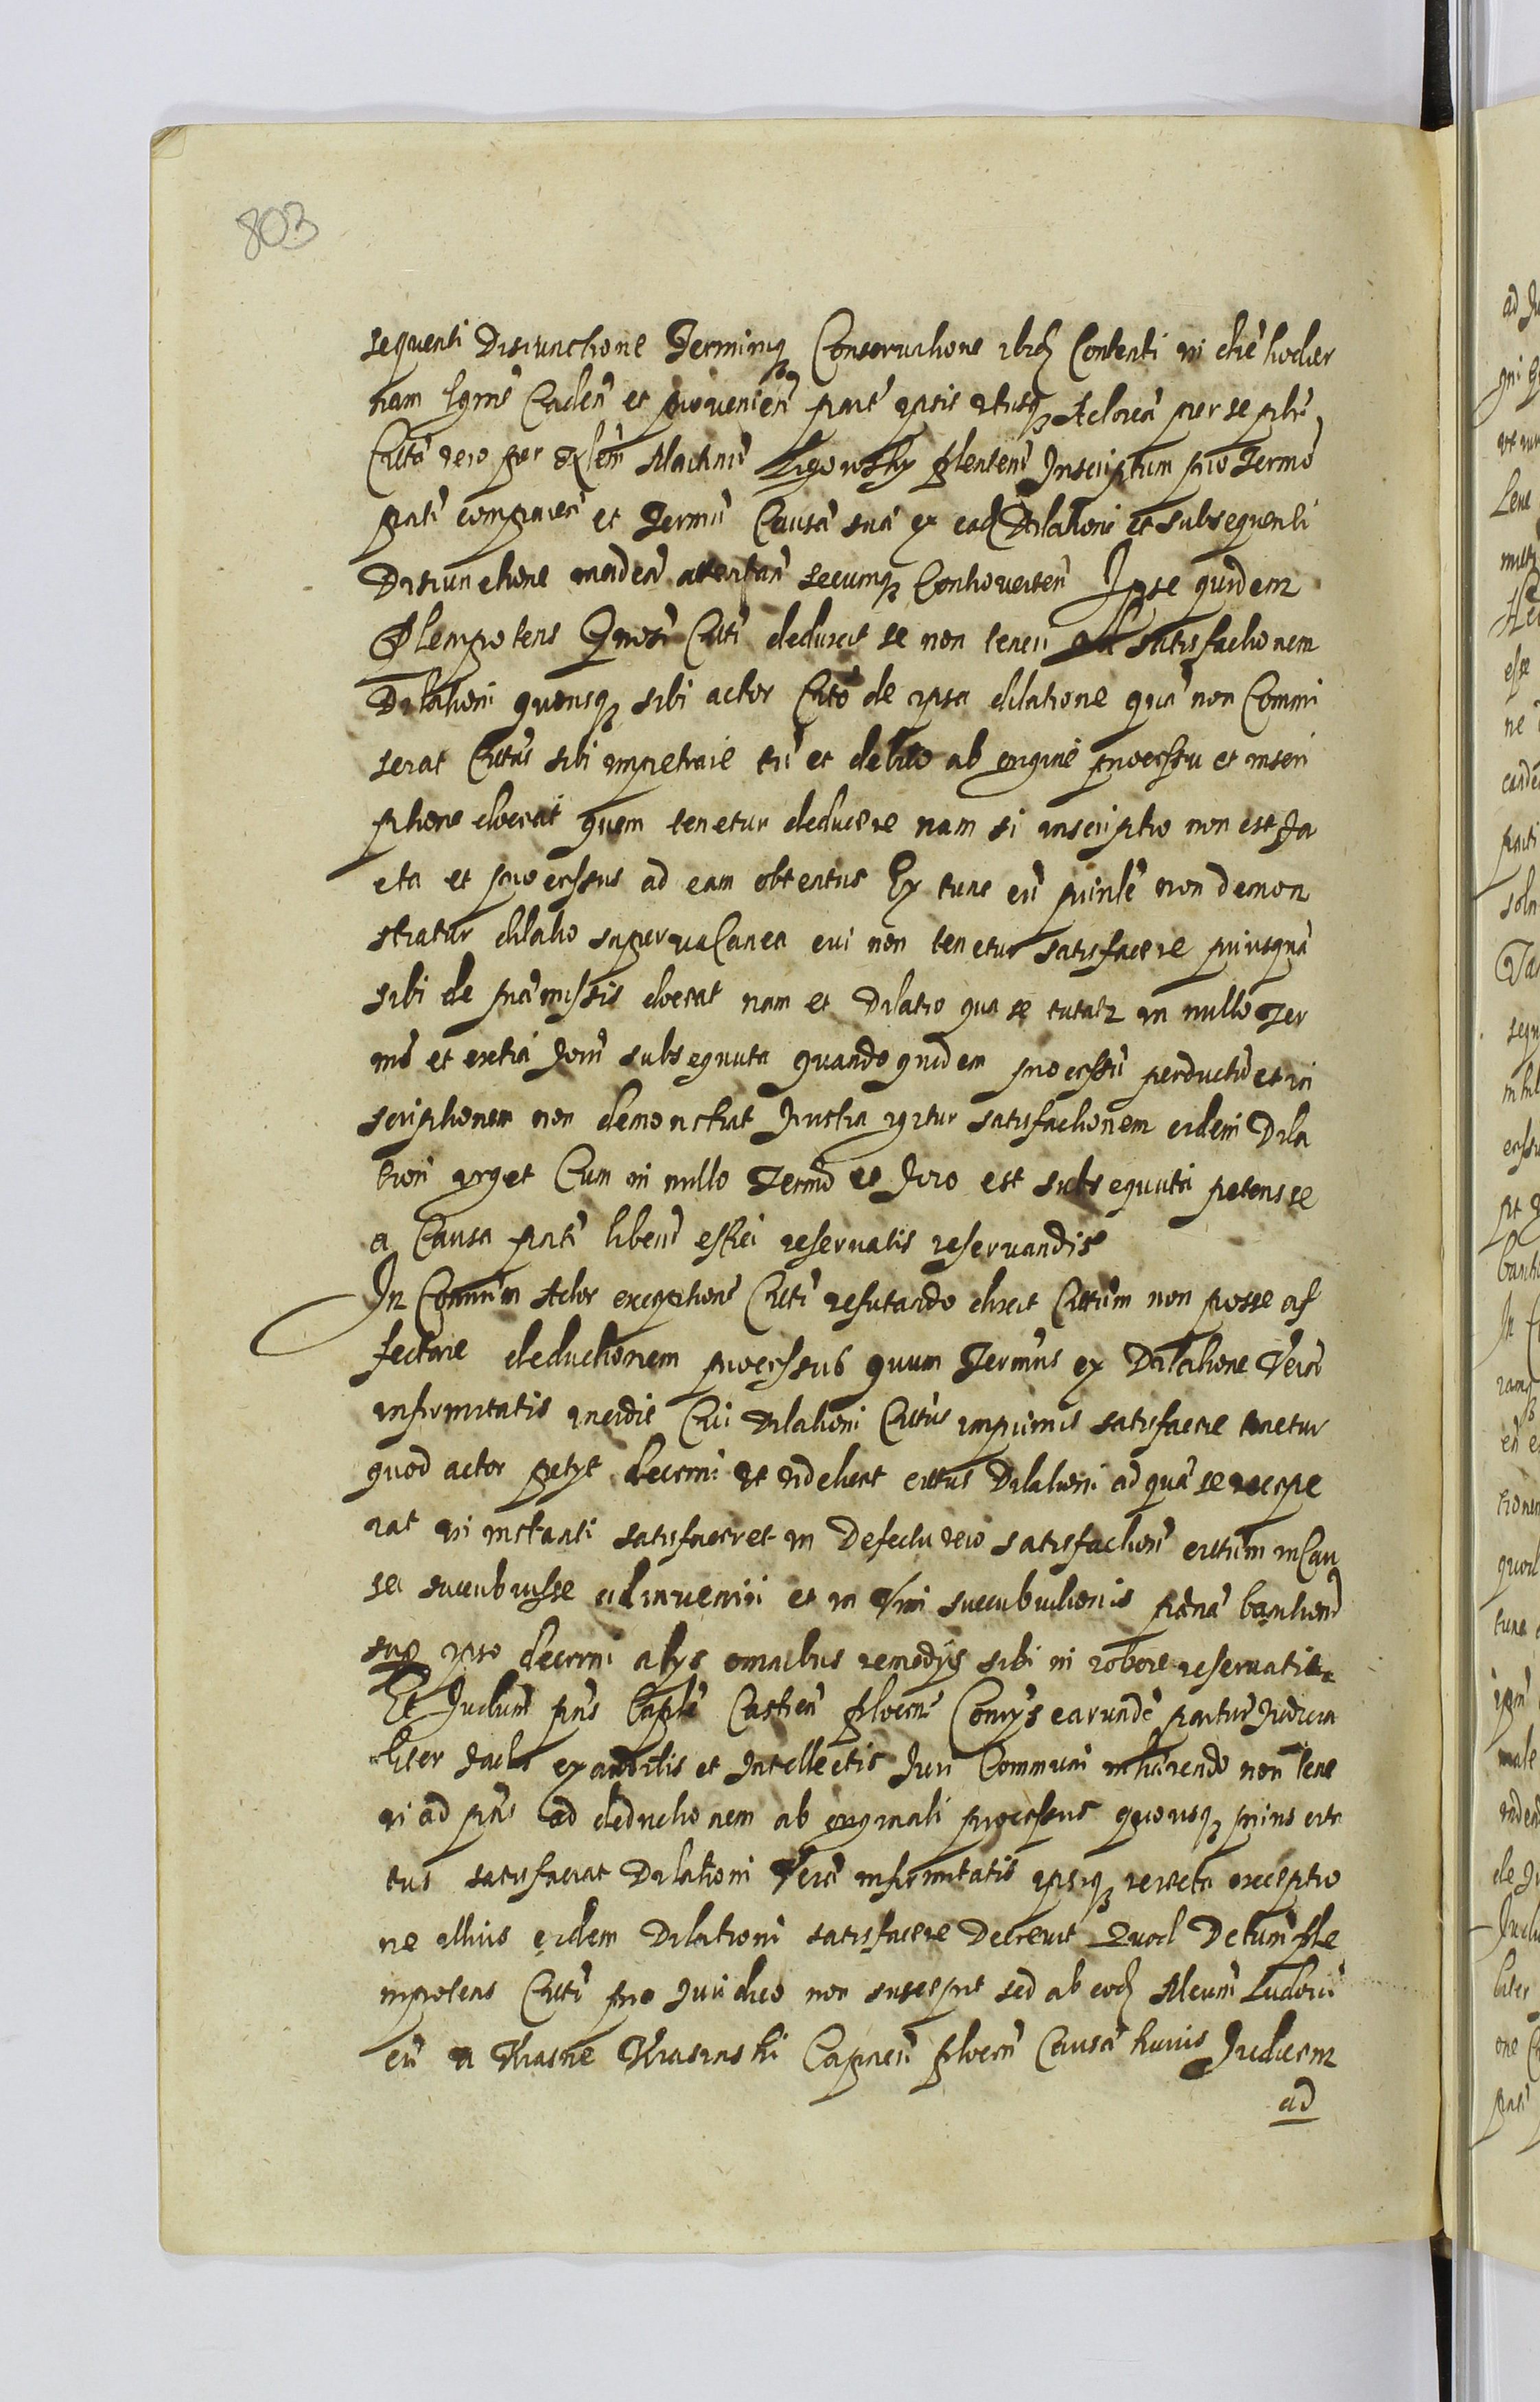 803
sequenti Disiunctione Terminiq Conservatione ibid Contenti in diē hodier
nam Caden et provenien part ipsis utrisq Actorea per se pñte
Citto vero per Martinū Ligowsky plentem Inscriptum pro Termo
pnti comparen et Termū Causā suā ex ead Dilatione et subsequenti
Disiunctione inciden attentan secumq Controverten Ipse quidem
Plenipotens Citti deduxit se non teneri ad satisfactionem
Dilationi quousq sibi actor Citto de ipsa dilatione quā non Commi
serat Cittus sibi impetrare tū et debito ab origine processu et inscri
ptione doceat quem tenetur deducere nam si inscriptio non est fa
cta et processus ad eam obtentus Ex tunc eū non demon
stratur dilatio supervacanea cui non tenetur satisfacere priusquā
sibi de præmissis doceat nam et Dilatio qua se tutatr in nullo Ter
mō et extra forū subsequuta quandoquidem processū perductū et in
scriptionem non demonstrat frustra igitur satisfactionem eidem Dila
tioni urget Cum in nullo Termō et foro est subsequuta petens se
a Causa pnti liberū effici reservatis reservandis
In Contrarium Actor exceptionē Citti refutando dixit Cittum non posse af
fectare deductionem processus quum Terminus ex Dilatione Veræ
infirmitatis incidit Cui Dilationi Cittus inprimis satisfacere tenetur
quod actor petyt decerni ut videlicet cittus Dilationi ad quā se recepe
rat in instanti satisfaceret in Defectu vero satisfactionis cittum in Cau
sa succubuisse adinveniri et in Vim succubitionis pœnā banitionis
sup ipso decerni alys omnibus remedys sibi in robore reservatis
Et Iudium pñs Capłe Castren plocen Comys earundē partiū Iudicia
liter factis exauditis et Intellectis Iuri Communi inhærendo non tene
ri ad pñs ad deductionem ab originali processus quousq prius cit
tus satisfaciat Dilationi Veræ infirmitatis ipsiq reiecta exceptio
ne illius eidem Dilationi satisfacere Decrevit Quod Detum Ple
nipotens Citti pro Iuridico non suscepit sed ab eod Ludovi
cū a Krasne Krasinski Capneū plocen Causæ huius Iudicem
ad